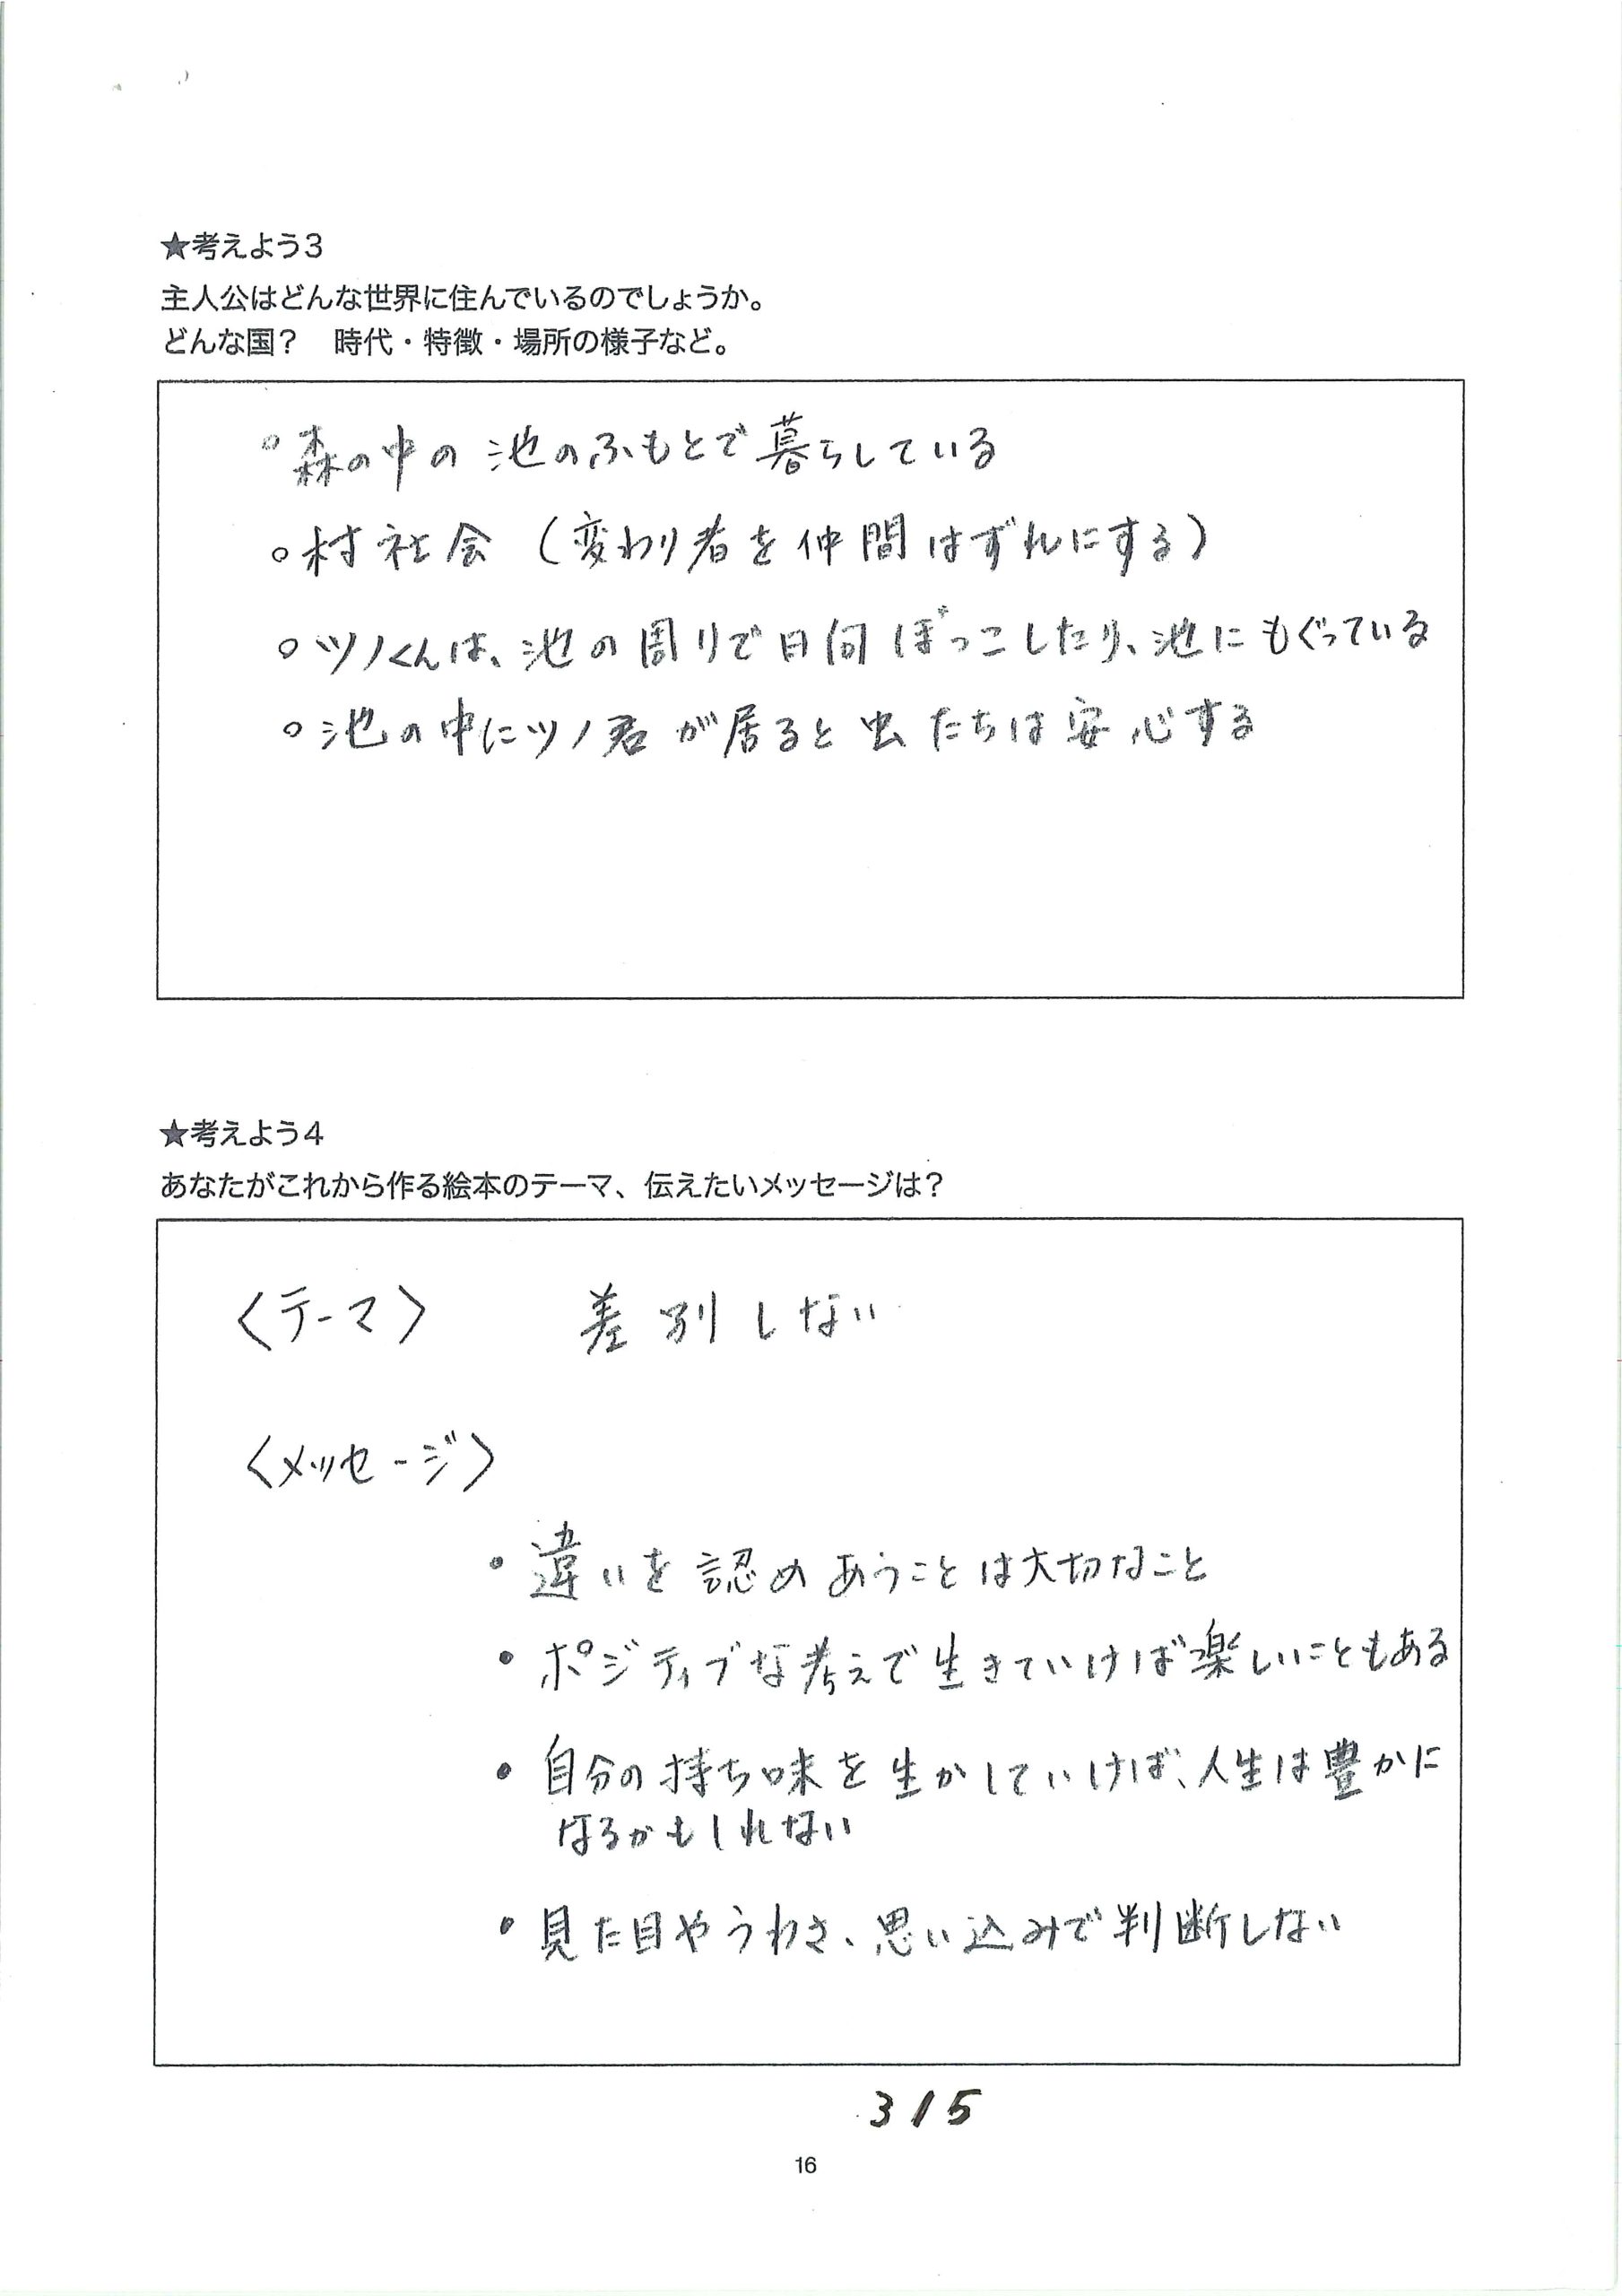 ★考えよう3
主人公はどんな世界に住んでいるのでしょうか。
どんな国？　時代・特徴・場所の様子など。
○森の中の池のふもとで暮らしている
○村社会（変わり者を仲間はずれにする）
○ツノくんは、池の周りで日向ぼっこしたり、池にもぐっている
○池の中にツノ君が居ると虫たちは安心する
★考えよう4
あなたがこれから作る絵本のテーマ、伝えたいメッセージは？
〈テーマ〉　差別しない
〈メッセージ〉
・違いを認めあうことは大切なこと
・ポジティブな考えで生きていけば楽しいこともある
・自分の持ち味を生かしていけば、人生は豊かに
なるかもしれない
・見た目やうわさ、思い込みで判断しない
315
16